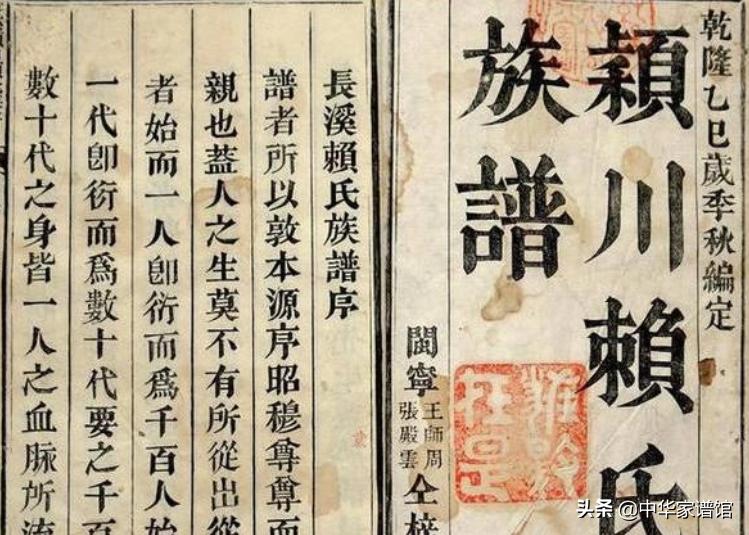 乾隆乙巳歲季秋編定
頴川賴氏
族譜
閩寧
王師周
張殿雲
仝梓
長溪賴氏族譜序
譜者所以敦本源序昭穆尊尊而
親也蓋人之生莫不有所從出從
者始而一人卽衍而爲千百人始
一代卽衍而爲數十代要之千百
數十代之身皆一人之血脈所流
头条 @中华家谱馆